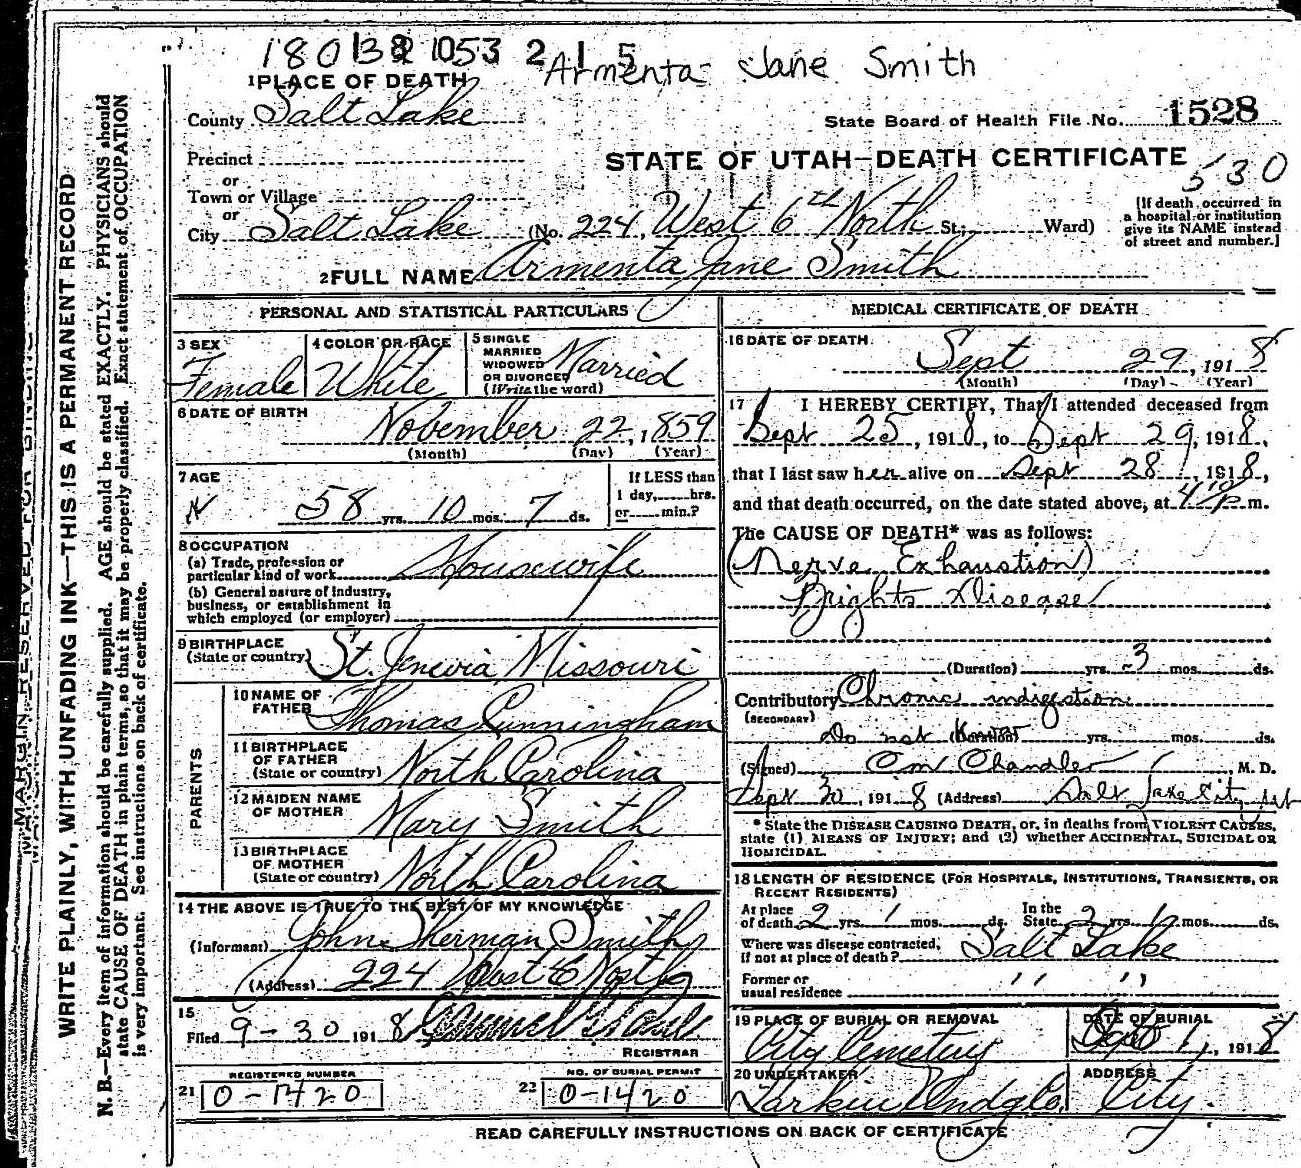 180132 1053 2 1 5
Armenta Jane Smith
1 PLACE OF DEATH
County Salt Lake
State Board of Health File No. 1528
Precinct
STATE OF UTAH—DEATH CERTIFICATE
530
or
Town or Village
or
City Salt Lake (No. 224, West 6th North St.; Ward)
[If death occurred in
a hospital or institution
give its NAME instead
of street and number.]
2 FULL NAME Armenta Jane Smith
PERSONAL AND STATISTICAL PARTICULARS
3 SEX
Female
4 COLOR OR RACE
White
5 SINGLE
MARRIED
WIDOWED
OR DIVORCED
(Write the word)
Married
6 DATE OF BIRTH
November 22, 1859
(Month) (Day) (Year)
7 AGE
58 yrs. 10 mos. 7 ds.
If LESS than
1 day, hrs.
or min.?
8 OCCUPATION
(a) Trade, profession or
particular kind of work Housewife
(b) General nature of industry,
business, or establishment in
which employed (or employer)
9 BIRTHPLACE
(State or country) St. Jenevia Missouri
PARENTS
10 NAME OF
FATHER Thomas Cunningham
11 BIRTHPLACE
OF FATHER
(State or country) North Carolina
12 MAIDEN NAME
OF MOTHER Mary Smith
13 BIRTHPLACE
OF MOTHER
(State or country) North Carolina
14 THE ABOVE IS TRUE TO THE BEST OF MY KNOWLEDGE
(Informant) John Sherman Smith
(Address) 224 West 6 North
15
Filed 9-30 1918
REGISTRAR
REGISTERED NUMBER
21 0-1420
NO. OF BURIAL PERMIT
22 0-1420
MEDICAL CERTIFICATE OF DEATH
16 DATE OF DEATH
Sept 29, 1918
(Month) (Day) (Year)
17 I HEREBY CERTIFY, That I attended deceased from
Sept 25, 1918, to Sept 29, 1918,
that I last saw her alive on Sept 28, 1918,
and that death occurred, on the date stated above, at m.
The CAUSE OF DEATH* was as follows:
(Nerve Exhaustion)
Brights Disease
(Duration) yrs. 3 mos. ds.
Contributory Chronic indigestion
(SECONDARY)
Do not Know yrs. mos. ds.
(Signed) O M Chandler, M. D.
Sept 30, 1918 (Address) Salt Lake City Ut
* State the DISEASE CAUSING DEATH, or, in deaths from VIOLENT CAUSES,
state (1) MEANS OF INJURY; and (2) whether ACCIDENTAL, SUICIDAL OR
HOMICIDAL.
18 LENGTH OF RESIDENCE (FOR HOSPITALS, INSTITUTIONS, TRANSIENTS, OR
RECENT RESIDENTS)
At place
of death 2 yrs. 1 mos. ds.
In the
State 2 yrs. mos. ds.
Where was disease contracted,
if not at place of death? Salt Lake
Former or
usual residence " "
19 PLACE OF BURIAL OR REMOVAL
City Cemetery
DATE OF BURIAL
1, 1918
20 UNDERTAKER
Larkin Undg Co.
ADDRESS
City.
READ CAREFULLY INSTRUCTIONS ON BACK OF CERTIFICATE
MARGIN RESERVED FOR BINDING
WRITE PLAINLY, WITH UNFADING INK—THIS IS A PERMANENT RECORD
N. B.—Every item of information should be carefully supplied. AGE should be stated EXACTLY. PHYSICIANS should
state CAUSE OF DEATH in plain terms, so that it may be properly classified. Exact statement of OCCUPATION
is very important. See instructions on back of certificate.